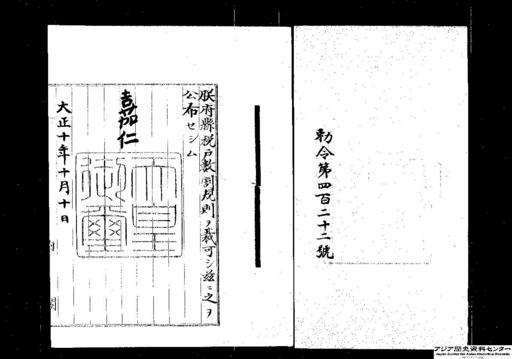 勅令第四百二十二號
朕府縣税戸數割規則ヲ裁可シ茲ニ之ヲ
公布セシム
嘉仁
天皇御璽
大正十年十月十日
アジア歴史資料センター
Japan Center for Asian Historical Records